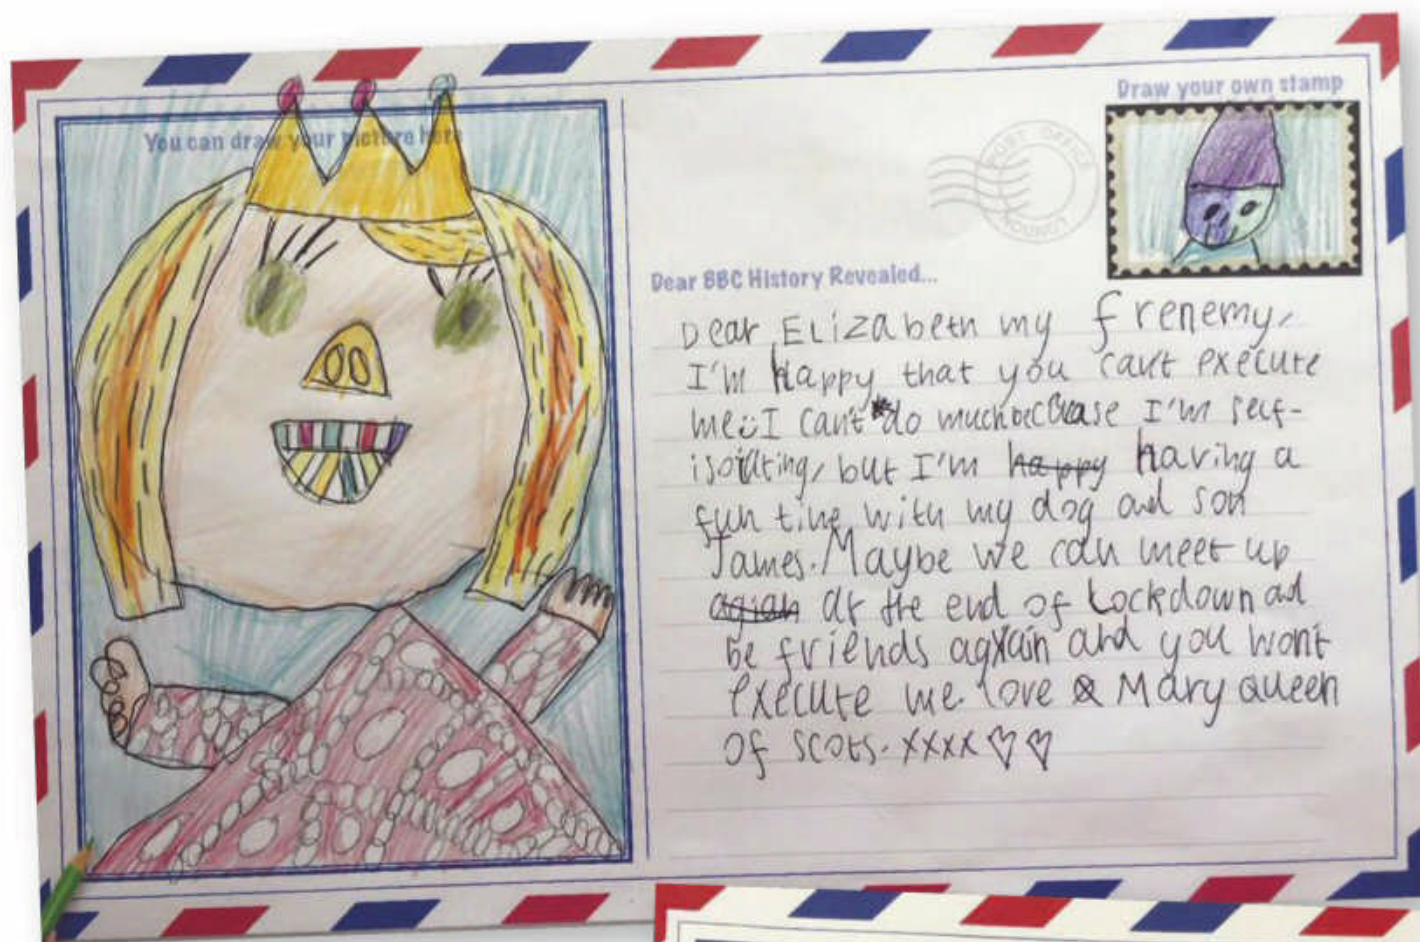 You can draw your picture here
Draw your own stamp
POST OFFICE
Dear BBC History Revealed...
Dear Elizabeth my frenemy,
I'm happy that you can't execute
me I can't do much because I'm self-
isolating, but I'm happy having a
fun time with my dog and son
James. Maybe we can meet up
agian at the end of Lockdown ad
be friends again and you won't
execute me. love Mary Queen
of scots. xxxx